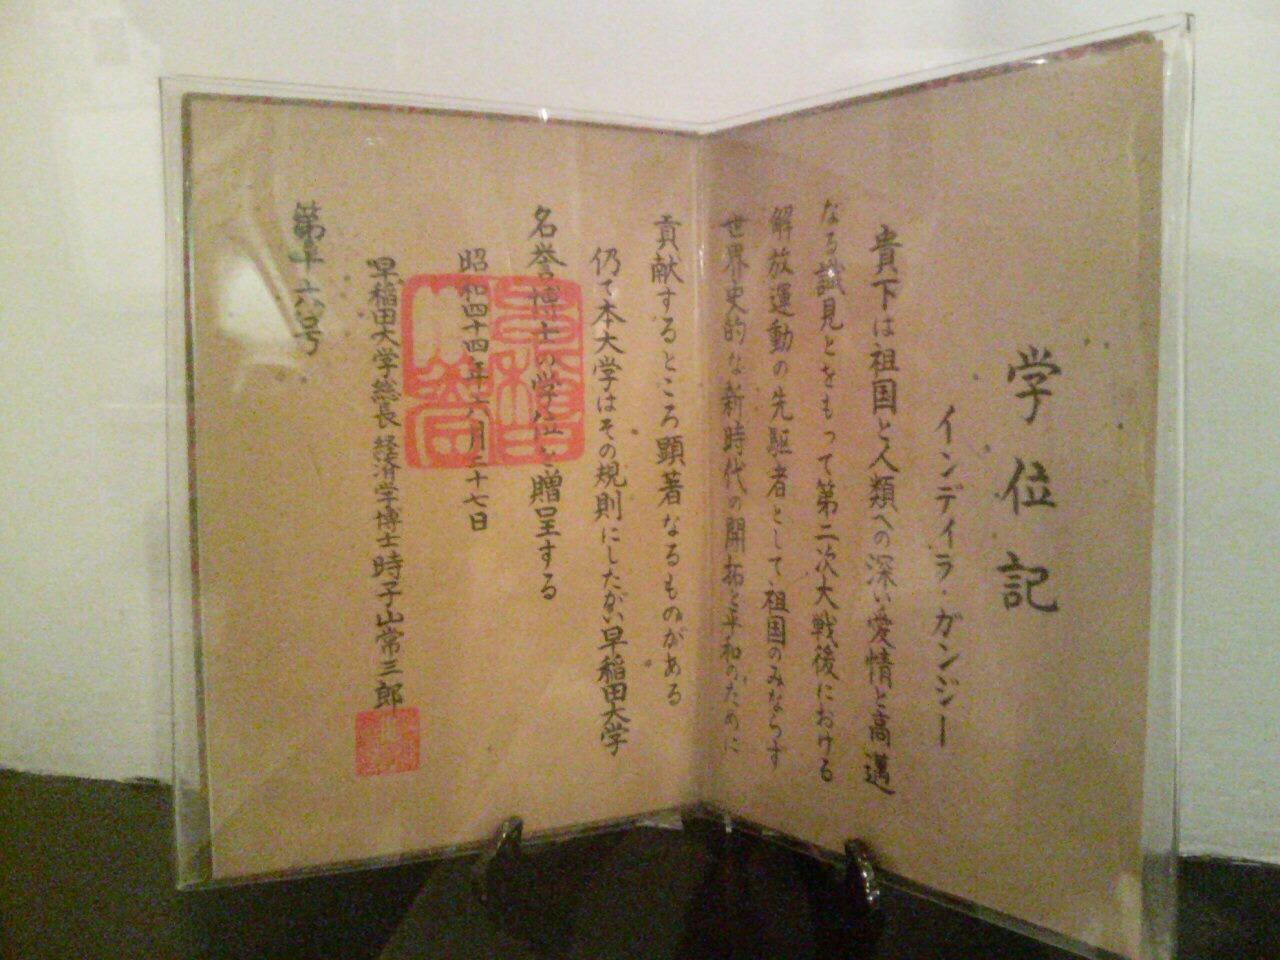 学位記
インディラ・ガンジー
貴下は祖国と人類への深い愛情と高邁
なる識見とをもって第二次大戦後における
解放運動の先駆者として祖国のみならず
世界史的な新時代の開拓と平和のために
貢献するところ顕著なるものがある
仍て本大学はその規則にしたがい早稲田大学
名誉博士の学位を贈呈する
昭和四十四年六月二十七日
早稲田大学総長経済学博士時子山常三郎
第十六号